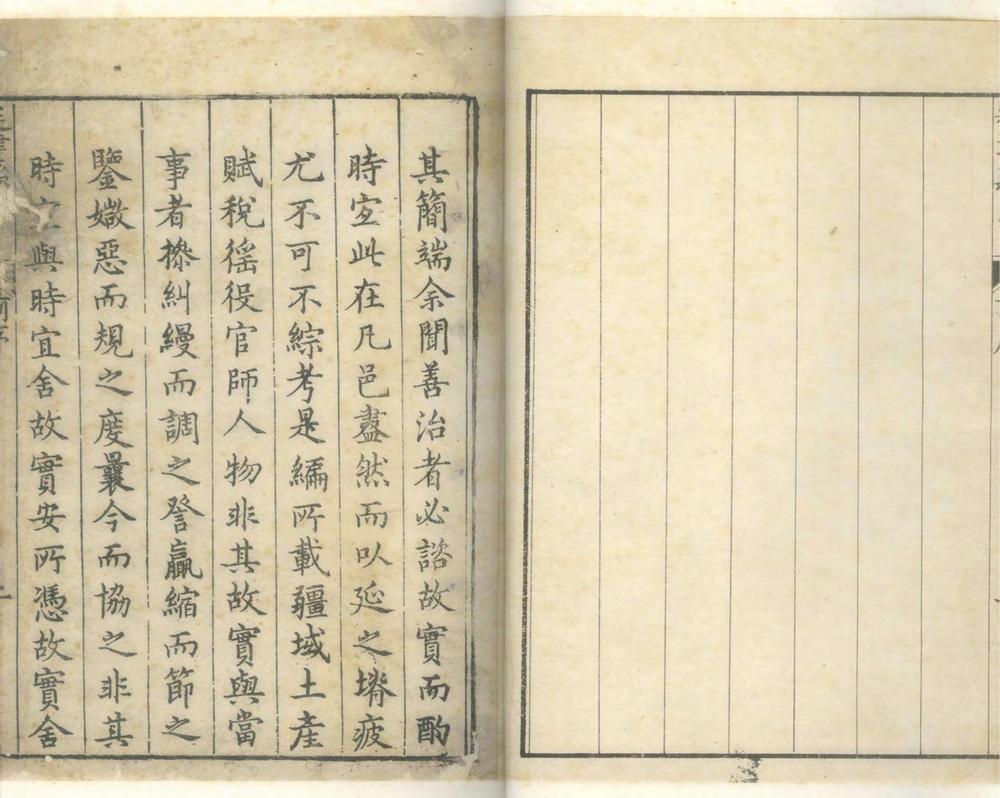 其簡端余聞善治者必諮故實而酌
時宐此在凡邑盡然而以延之塉疲
尤不可不綜考是編所載疆域土產
賦稅徭役官師人物非其故實與當
事者撩糾縵而調之詧贏縮而節之
鑒媺惡而規之度曩今而協之非其
時宜與時宜舍故實安所憑故實舍